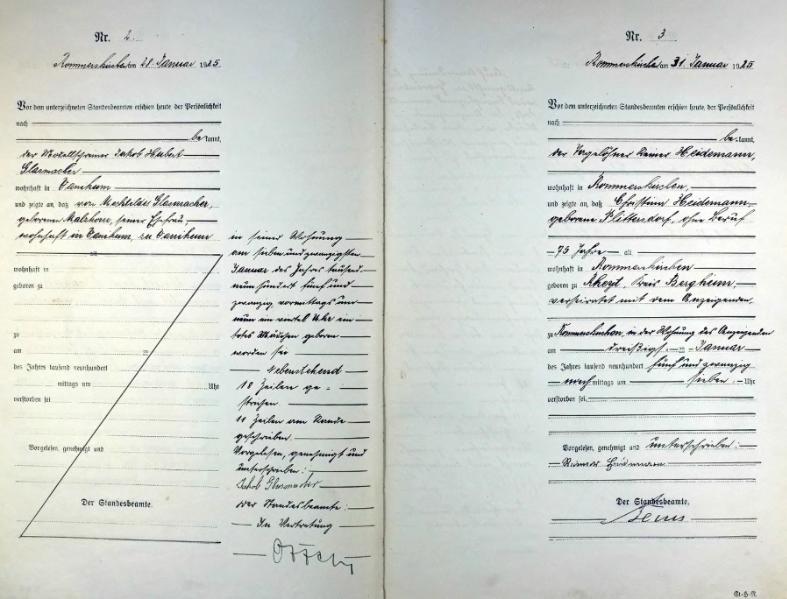 Nr. 2.
Rommerskirchen am 28 Januar 1925
Vor dem unterzeichneten Standesbeamten erschien heute, der Persönlichkeit
nach
bekannt,
der Modellschreiner Jakob Hubert
Glasmacher
wohnhaft in Vanikum
und zeigte an, daß von Mechtilde Glasmacher,
geborenen seiner Ehefrau,
wohnhaft in Vanikum, in Vanikum
alt
wohnhaft in
geboren zu
zu
am ten
des Jahres tausend neunhundert
mittags um Uhr
verstorben sei
Vorgelesen, genehmigt und
Der Standesbeamte.
in seiner Wohnung
am sieben und zwanzigsten
Januar des Jahres tausend
neun hundert fünf und
zwanzig vormittags um
neun ein viertel Uhr ein
totes Mädchen geboren
worden sei
Nebenstehend
18 Zeilen ge-
strichen
11 Zeilen am Rande
geschrieben
Vorgelesen, genehmigt und
unterschrieben:
Jakob Glasmacher
Der Standesbeamte:
In Vertretung
Nr. 3
Rommerskirchen am 31 Januar 1925
Vor dem unterzeichneten Standesbeamten erschien heute, der Persönlichkeit
nach
bekannt,
der Tagelöhner Reiner Heidemann,
wohnhaft in Rommerskirchen,
und zeigte an, daß Christina Heidemann
geborene Plittersdorf, ohne Beruf
75 Jahre alt
wohnhaft in Rommerskirchen
geboren zu Rheydt, Kreis Bergheim,
verheiratet mit dem Anzeigenden,
zu Rommerskirchen, in der Wohnung des Anzeigenden
am dreißigsten Januar
des Jahres tausend neunhundert fünf und zwanzig
nachmittags um sieben Uhr
verstorben sei.
Vorgelesen, genehmigt und unterschrieben:
Reiner Heidemann
Der Standesbeamte.
St.-H-N.